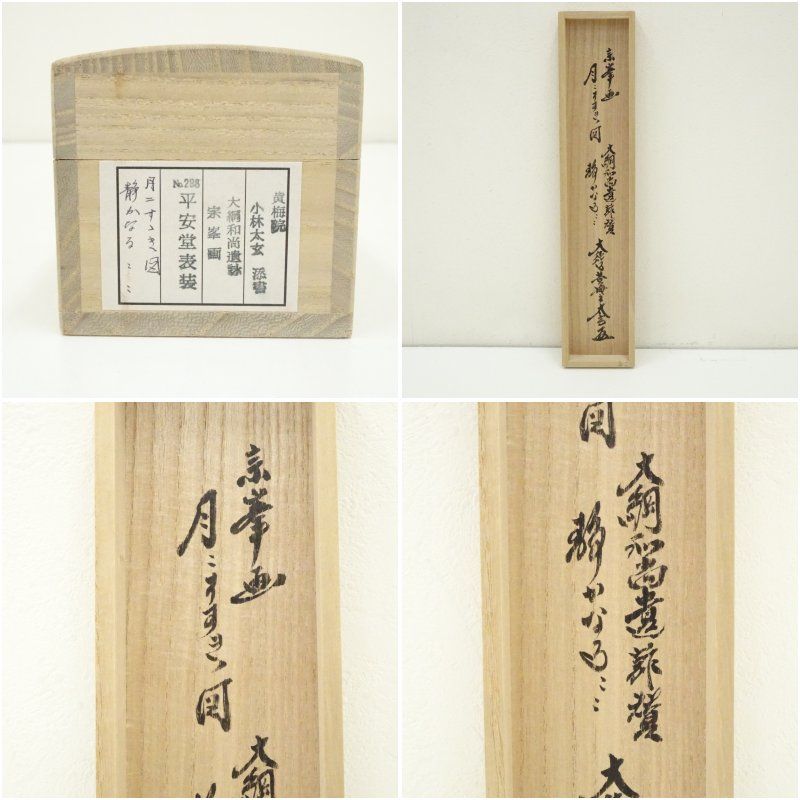 黄梅院
小林太玄 添書
大綱和尚遺詠
宗峯画
No.298
平安堂表装
月ニすゝき図
静かなる ミミ
宗峯画
月ニすすき図
大綱和尚遺詠賛
静かなるミミ
宗峯画
月ニすすき図
大綱
図
大綱和尚遺詠賛
静かなるミミ
大